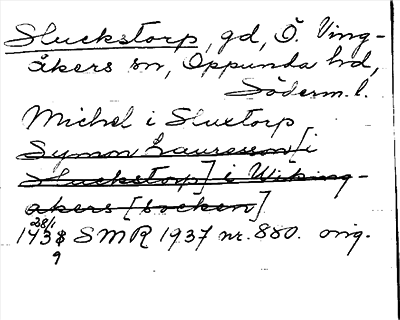 Sluckstorp, gd, Ö. Ving-
åkers sn, Oppunda hd,
Söderm. l.
Michel i Sluctorp
Symon Lauresson [i
Sluckstorp] i Wiking-
akers [socken]
28/1
1438 SMR 1937 nr. 880. orig.
9